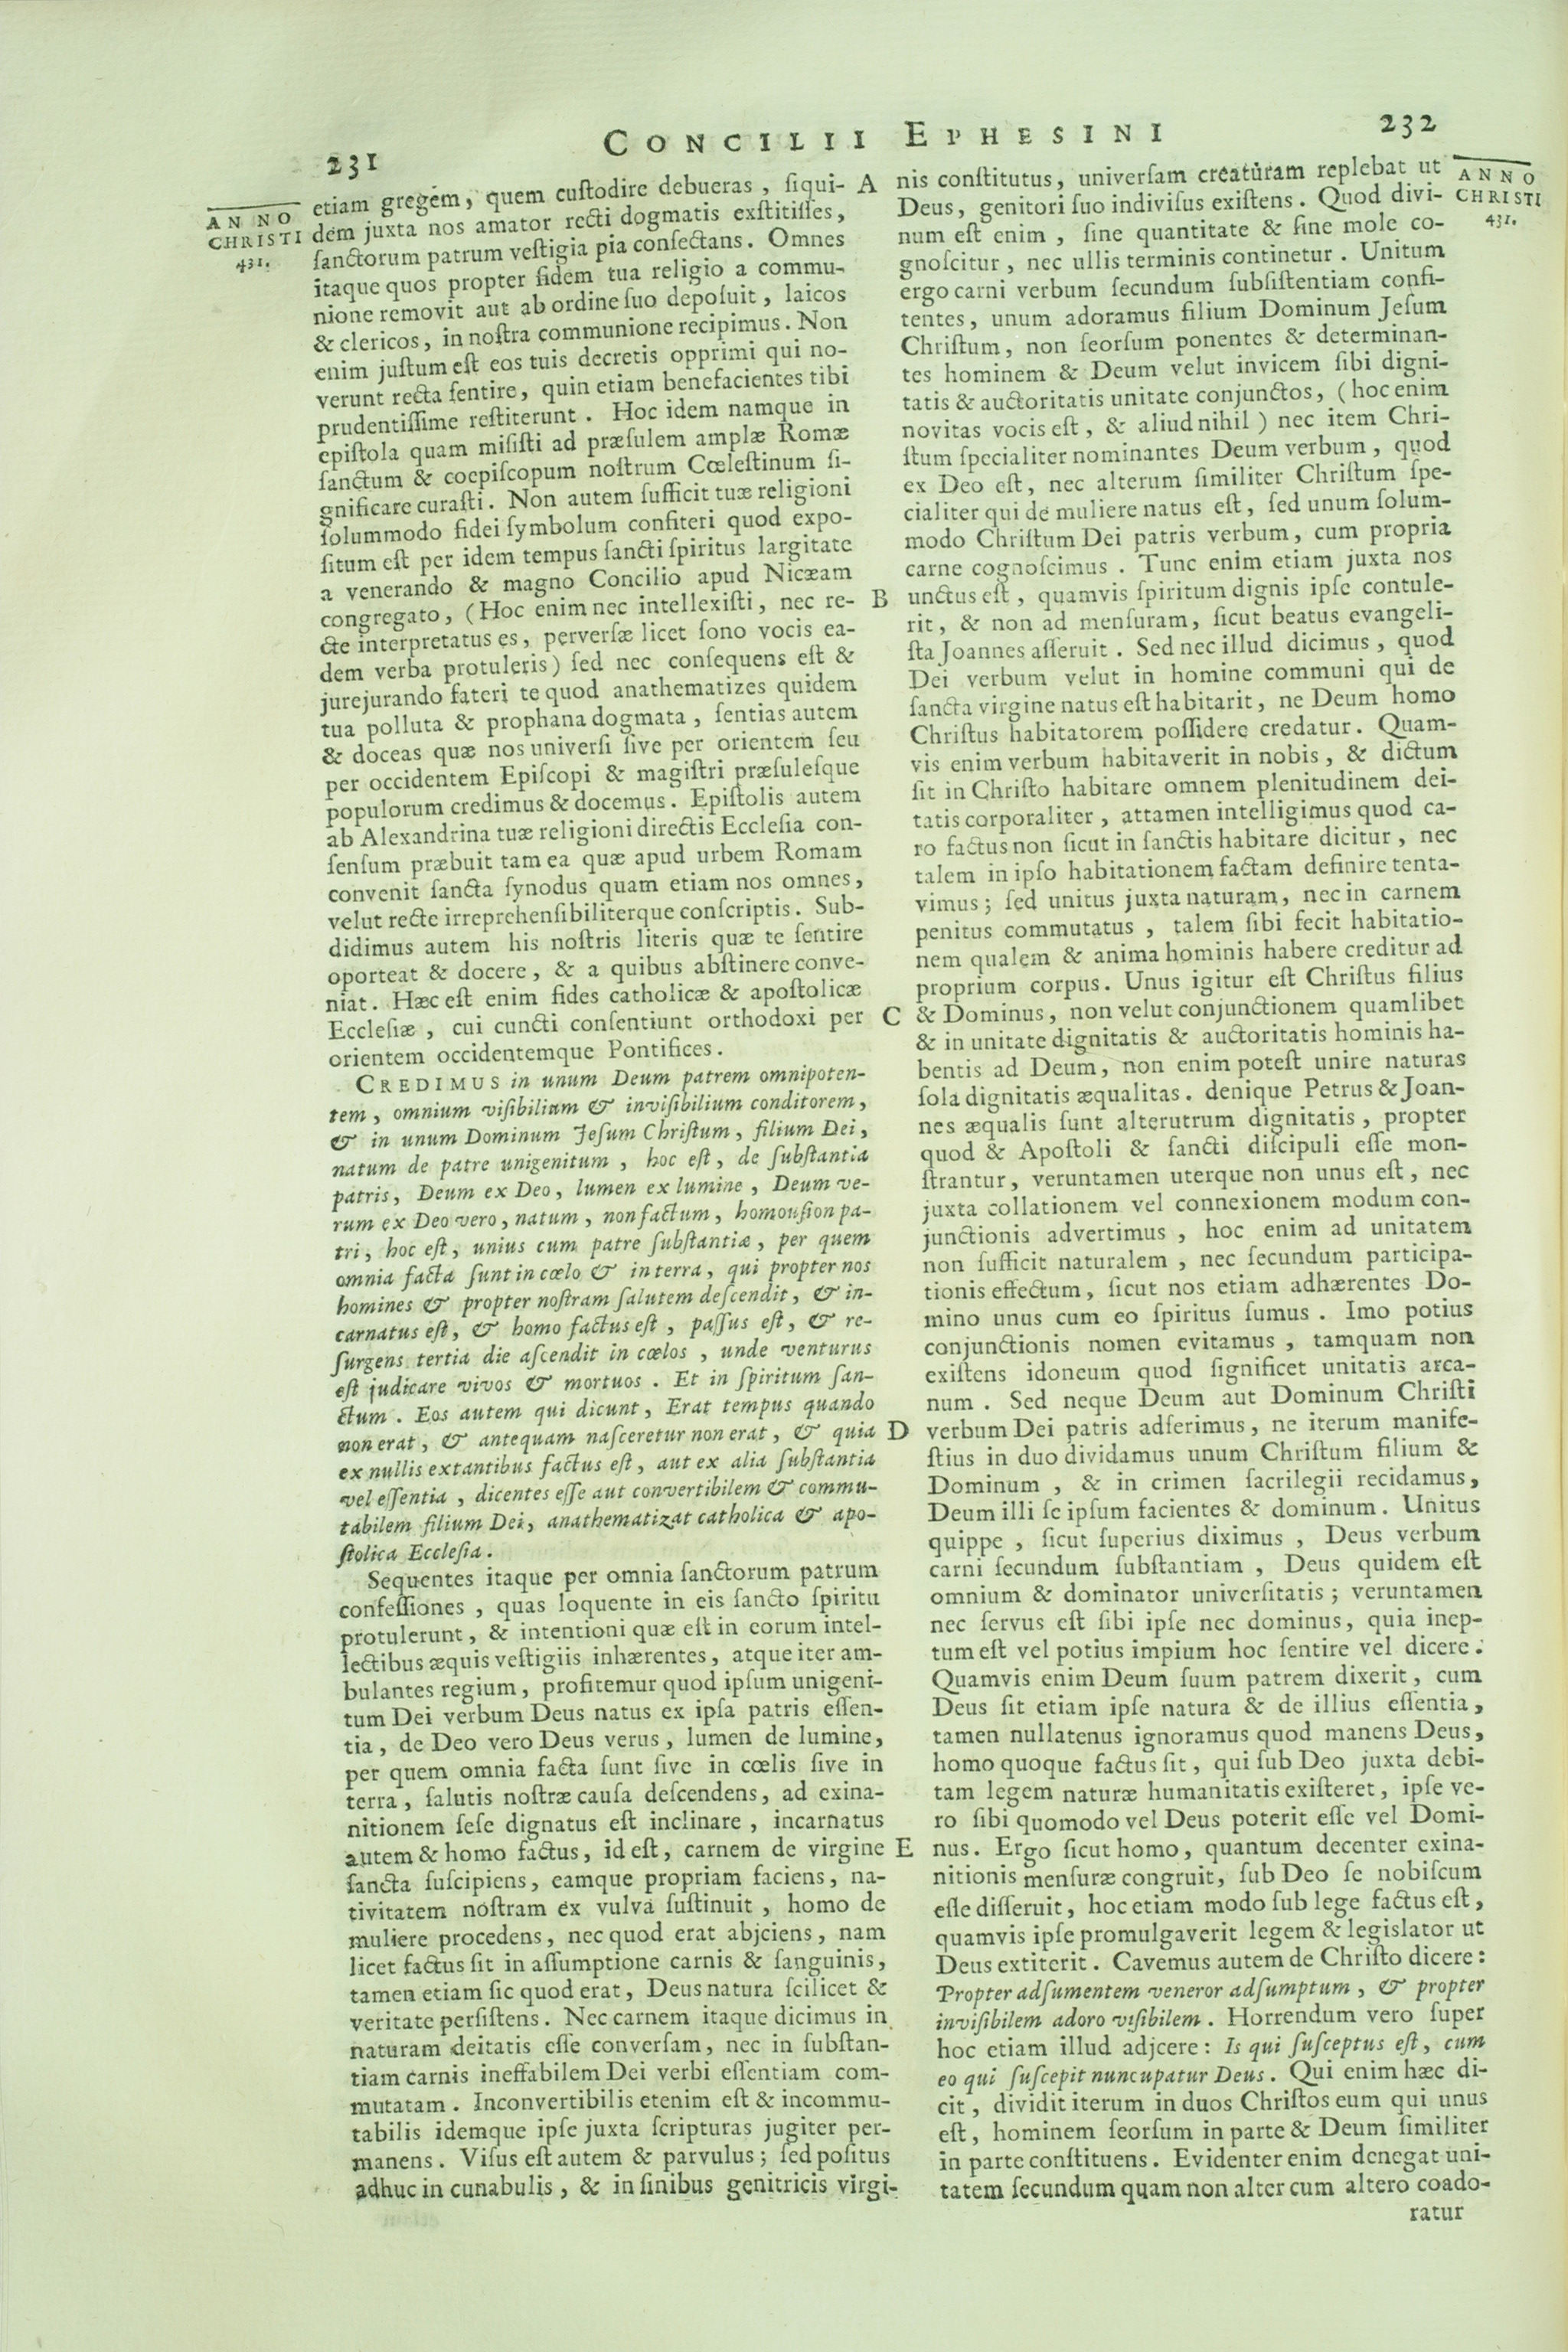 231
CONCILII EPHESINI
232
ANNO
CHRISTI
431.
etiam gregem, quem cuſtodire debueras, ſiqui-
dem juxta nos amator recti dogmatis exſtitiſſes,
ſanctorum patrum veſtigia pia conſectans. Omnes
itaque quos propter fidem tua religio a commu-
nione removit aut ab ordine ſuo depoſuit, laicos
& clericos, in noſtra communione recipimus. Non
enim juſtum eſt eos tuis decretis opprimi qui no-
verunt recta ſentire, quin etiam benefacientes tibi
prudentiſſime reſtiterunt. Hoc idem namque in
epiſtola quam miſiſti ad præſulem amplæ Romæ
ſanctum & coepiſcopum noſtrum Cœleſtinum ſi-
gnificare curaſti. Non autem ſufficit tuæ religioni
ſolummodo fidei ſymbolum confiteri quod expo-
ſitum eſt per idem tempus ſancti ſpiritus largitate
a venerando & magno Concilio apud Nicæam
congregato, (Hoc enim nec intellexiſti, nec re-
cte interpretatus es, perverſæ licet ſono vocis ea-
dem verba protuleris) ſed nec conſequens eſt &
jurejurando fateri te quod anathematizes quidem
tua polluta & prophana dogmata, ſentias autem
& doceas quæ nos univerſi ſive per orientem ſeu
per occidentem Epiſcopi & magiſtri præſuleſque
populorum credimus & docemus. Epiſtolis autem
ab Alexandrina tuæ religioni directis Eccleſia con-
ſenſum præbuit tam ea quæ apud urbem Romam
convenit ſancta ſynodus quam etiam nos omnes,
velut recte irreprehenſibiliterque conſcriptis. Sub-
didimus autem his noſtris literis quæ te ſentire
oporteat & docere, & a quibus abſtinere conve-
niat. Hæc eſt enim fides catholicæ & apoſtolicæ
Eccleſiæ, cui cuncti conſentiunt orthodoxi per
orientem occidentemque Pontifices.
CREDIMUS in unum Deum patrem omnipoten-
tem, omnium viſibilium & inviſibilium conditorem,
& in unum Dominum Jeſum Chriſtum, filium Dei,
natum de patre unigenitum, hoc eſt, de ſubſtantia
patris, Deum ex Deo, lumen ex lumine, Deum ve-
rum ex Deo vero, natum, non factum, homouſion pa-
tri, hoc eſt, unius cum patre ſubſtantiæ, per quem
omnia facta ſunt in cœlo & in terra, qui propter nos
homines & propter noſtram ſalutem deſcendit, & in-
carnatus eſt, & homo factus eſt, paſſus eſt, & re-
ſurgens tertia die aſcendit in cœlos, unde venturus
eſt judicare vivos & mortuos. Et in ſpiritum ſan-
ctum. Eos autem qui dicunt, Erat tempus quando
non erat, & antequam naſceretur non erat, & quia
ex nullis extantibus factus eſt, aut ex alia ſubſtantia
vel eſſentia, dicentes eſſe aut convertibilem & commu-
tabilem filium Dei, anathematizat catholica & apo-
ſtolica Eccleſia.
Sequentes itaque per omnia ſanctorum patrum
confeſſiones, quas loquente in eis ſancto ſpiritu
protulerunt, & intentioni quæ eſt in eorum intel-
lectibus æquis veſtigiis inhærentes, atque iter am-
bulantes regium, profitemur quod ipſum unigeni-
tum Dei verbum Deus natus ex ipſa patris eſſen-
tia, de Deo vero Deus verus, lumen de lumine,
per quem omnia facta ſunt ſive in cœlis ſive in
terra, ſalutis noſtræ cauſa deſcendens, ad exina-
nitionem ſeſe dignatus eſt inclinare, incarnatus
autem & homo factus, id eſt, carnem de virgine
ſancta ſuſcipiens, eamque propriam faciens, na-
tivitatem noſtram ex vulva ſuſtinuit, homo de
muliere procedens, nec quod erat abjciens, nam
licet factus ſit in aſſumptione carnis & ſanguinis,
tamen etiam ſic quod erat, Deus natura ſcilicet &
veritate perſiſtens. Nec carnem itaque dicimus in
naturam deitatis eſſe converſam, nec in ſubſtan-
tiam carnis ineffabilem Dei verbi eſſentiam com-
mutatam. Inconvertibilis etenim eſt & incommu-
tabilis idemque ipſe juxta ſcripturas jugiter per-
manens. Viſus eſt autem & parvulus; ſed poſitus
adhuc in cunabulis, & in ſinibus genitricis virgi-
A
B
C
D
E
nis conſtitutus, univerſam creaturam replebat ut
Deus, genitori ſuo indiviſus exiſtens. Quod divi-
num eſt enim, ſine quantitate & ſine mole co-
gnoſcitur, nec ullis terminis continetur. Unitum
ergo carni verbum ſecundum ſubſiſtentiam confi-
tentes, unum adoramus filium Dominum Jeſum
Chriſtum, non ſeorſum ponentes & determinan-
tes hominem & Deum velut invicem ſibi digni-
tatis & auctoritatis unitate conjunctos, (hoc enim
novitas vocis eſt, & aliud nihil) nec item Chri-
ſtum ſpecialiter nominantes Deum verbum, quod
ex Deo eſt, nec alterum ſimiliter Chriſtum ſpe-
cialiter qui de muliere natus eſt, ſed unum ſolum-
modo Chriſtum Dei patris verbum, cum propria
carne cognoſcimus. Tunc enim etiam juxta nos
unctus eſt, quamvis ſpiritum dignis ipſe contule-
rit, & non ad menſuram, ſicut beatus evangeli-
ſta Joannes aſſeruit. Sed nec illud dicimus, quod
Dei verbum velut in homine communi qui de
ſancta virgine natus eſt habitarit, ne Deum homo
Chriſtus habitatorem poſſidere credatur. Quam-
vis enim verbum habitaverit in nobis, & dictum
ſit in Chriſto habitare omnem plenitudinem dei-
tatis corporaliter, attamen intelligimus quod ca-
ro factus non ſicut in ſanctis habitare dicitur, nec
talem in ipſo habitationem factam definire tenta-
vimus; ſed unitus juxta naturam, nec in carnem
penitus commutatus, talem ſibi fecit habitatio-
nem qualem & anima hominis habere creditur ad
proprium corpus. Unus igitur eſt Chriſtus filius
& Dominus, non velut conjunctionem quamlibet
& in unitate dignitatis & auctoritatis hominis ha-
bentis ad Deum, non enim poteſt unire naturas
ſola dignitatis æqualitas. denique Petrus & Joan-
nes æqualis ſunt alterutrum dignitatis, propter
quod & Apoſtoli & ſancti diſcipuli eſſe mon-
ſtrantur, veruntamen uterque non unus eſt, nec
juxta collationem vel connexionem modum con-
junctionis advertimus, hoc enim ad unitatem
non ſufficit naturalem, nec ſecundum participa-
tionis effectum, ſicut nos etiam adhærentes Do-
mino unus cum eo ſpiritus ſumus. Imo potius
conjunctionis nomen evitamus, tamquam non
exiſtens idoneum quod ſignificet unitatis arca-
num. Sed neque Deum aut Dominum Chriſti
verbum Dei patris adferimus, ne iterum manife-
ſtius in duo dividamus unum Chriſtum filium &
Dominum, & in crimen ſacrilegii recidamus,
Deum illi ſe ipſum facientes & dominum. Unitus
quippe, ſicut ſuperius diximus, Deus verbum
carni ſecundum ſubſtantiam, Deus quidem eſt
omnium & dominator univerſitatis; veruntamen
nec ſervus eſt ſibi ipſe nec dominus, quia inep-
tum eſt vel potius impium hoc ſentire vel dicere.
Quamvis enim Deum ſuum patrem dixerit, cum
Deus ſit etiam ipſe natura & de illius eſſentia,
tamen nullatenus ignoramus quod manens Deus,
homo quoque factus ſit, qui ſub Deo juxta debi-
tam legem naturæ humanitatis exiſteret, ipſe ve-
ro ſibi quomodo vel Deus poterit eſſe vel Domi-
nus. Ergo ſicut homo, quantum decenter exina-
nitionis menſuræ congruit, ſub Deo ſe nobiſcum
eſſe diſſeruit, hoc etiam modo ſub lege factus eſt,
quamvis ipſe promulgaverit legem & legislator ut
Deus extiterit. Cavemus autem de Chriſto dicere:
Propter adſumentem veneror adſumptum, & propter
inviſibilem adoro viſibilem. Horrendum vero ſuper
hoc etiam illud adjcere: Is qui ſuſceptus eſt, cum
eo qui ſuſcepit nuncupatur Deus. Qui enim hæc di-
cit, dividit iterum in duos Chriſtos eum qui unus
eſt, hominem ſeorſum in parte & Deum ſimiliter
in parte conſtituens. Evidenter enim denegat uni-
tatem ſecundum quam non alter cum altero coado-
ratur
ANNO
CHRISTI
431.